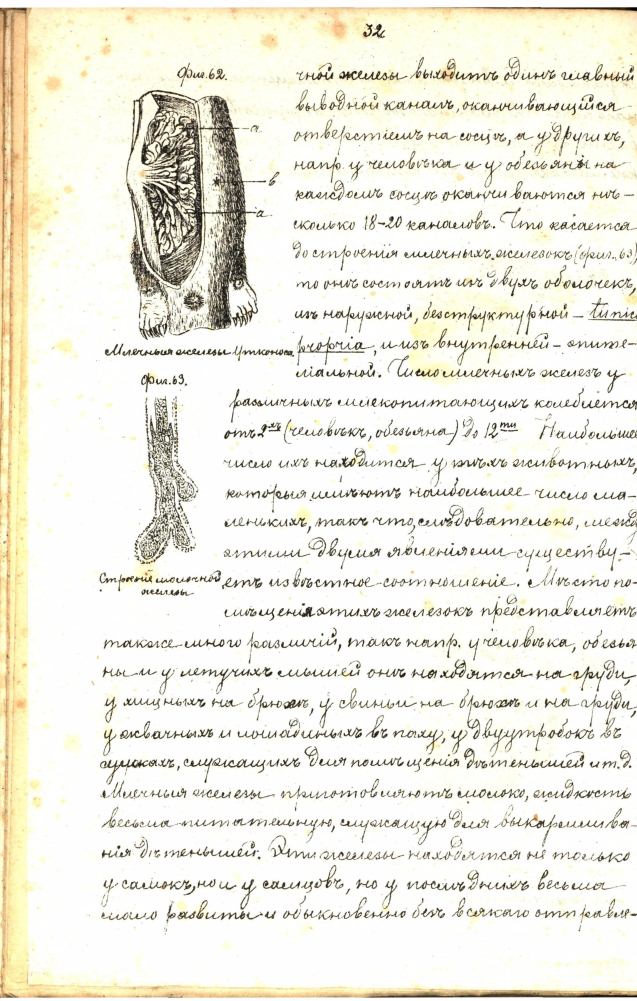 32
Фиг. 62.
а
в
а
Млечныя железы Утконоса.
Фиг. 63.
Строенiе молочной
железы
чной железы выходитъ одинъ главный
выводной каналъ, оканчивающiйся
отверстiемъ на сосцѣ, а у другихъ,
напр. у человѣка и у обезьяны на
каждомъ сосцѣ оканчиваются нѣ-
сколько 18-20 каналовъ. Что касается
до строенiя млечныхъ железокъ (фиг. 63)
то онѣ состоятъ изъ двухъ оболочекъ,
изъ наружной, безструктурной - tunica
propria, и изъ внутренней - эпите-
лiальной. Число млечныхъ железъ у
различныхъ млекопитающихъ колеблется
отъ 2хъ (человѣкъ, обезьяна) до 12ти Наибольшее
число ихъ находится у тѣхъ животныхъ,
которыя имѣютъ наибольшее число ма-
ленькихъ, такъ что, слѣдовательно, между
этими двумя явленiями существу-
етъ извѣстное соотношенiе. Мѣсто по-
мѣщенiя этихъ железокъ представляетъ
также много различiй, такъ напр. у человѣка, обезья
ны и у летучихъ мышей онѣ находятся на груди,
у хищныхъ на брюхѣ, у свиньи на брюхѣ и на груди,
у жвачныхъ и лошадиныхъ въ паху, у двуутробокъ въ
сумкахъ, служащихъ для помѣщенiя дѣтенышей и т.д.
Млечныя железы приготовляютъ молоко, жидкость
весьма питательную, служащую для выкармлива-
нiя дѣтенышей. Эти железы находятся не только
у самокъ, но и у самцовъ, но у послѣднихъ весьма
мало развиты и обыкновенно безъ всякаго отправле-